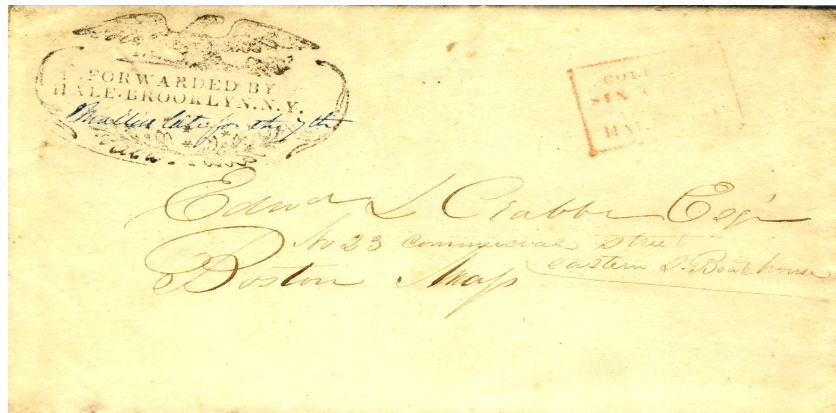 FORWARDED BY
HALE. BROOKLYN. N.Y.
late for the 7th
COL
SIX
HAL
Edwd L Crabbe Esqr
No 23 Commercial Street
eastern S. Boat house
Boston Mass